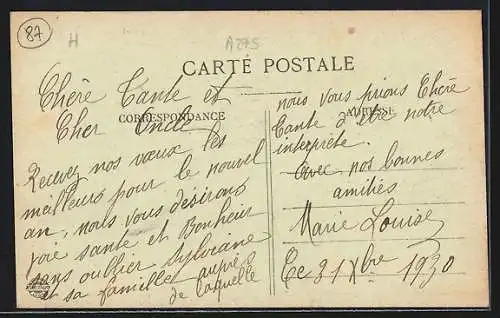 87
H
A275
CARTE POSTALE
CORRESPONDANCE
ADRESSE
Chère Tante et
Cher Oncle
Recevez nos vœux les
meilleurs pour le nouvel
an, nous vous désirons
joie sante et Bonheur
sans oublier Sylviane
et sa famille auprè
de laquelle
nous vous prions Chère
Tante d'être notre
interprète.
Avec nos bonnes
amitiés
Marie Louise
Ce 31 Xbre 1930